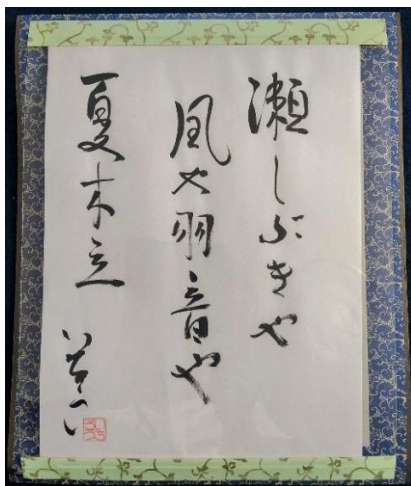 瀬しぶきや
風や羽音や
夏木立